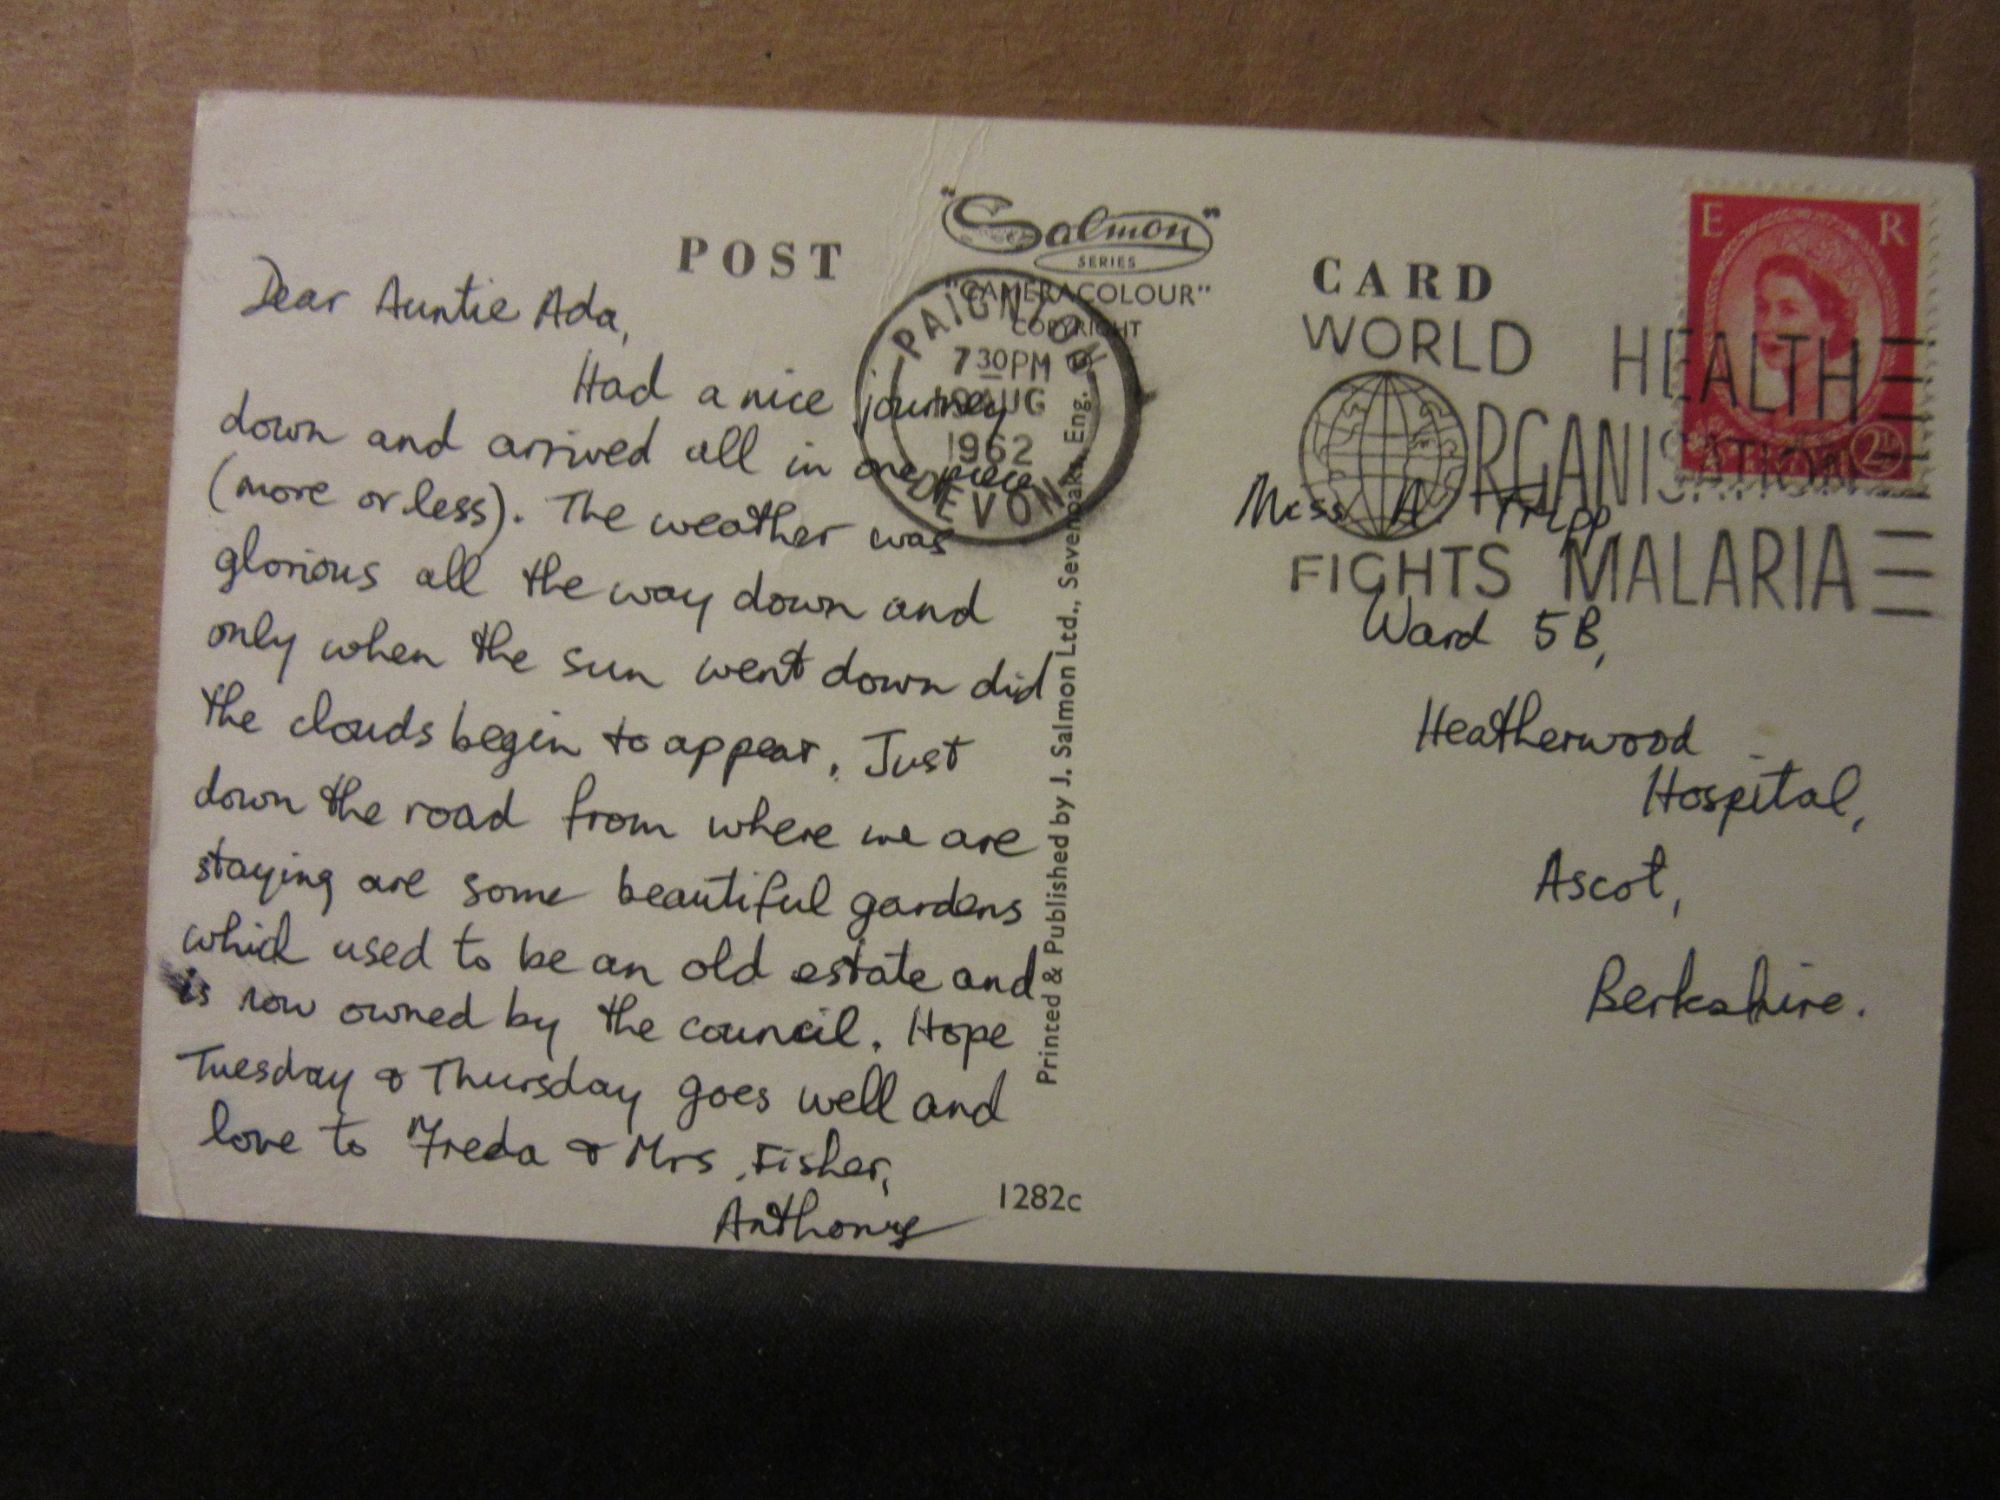 POST CARD
"Salmon"
SERIES
"CAMERACOLOUR"
COPYRIGHT
PAIGNTON
7 30PM
19 AUG
1962
DEVON
E R
WORLD HEALTH
ORGANISATION
FIGHTS MALARIA
Dear Auntie Ada,
Had a nice journey
down and arrived all in one piece
(more or less). The weather was
glorious all the way down and
only when the sun went down did
the clouds begin to appear. Just
down the road from where we are
staying are some beautiful gardens
which used to be an old estate and
is now owned by the council. Hope
Tuesday & Thursday goes well and
love to Freda & Mrs. Fisher,
Anthony
Printed & Published by J. Salmon Ltd., Sevenoaks, Eng.
1282c
Miss A. Tripp,
Ward 5B,
Heatherwood
Hospital,
Ascot,
Berkshire.